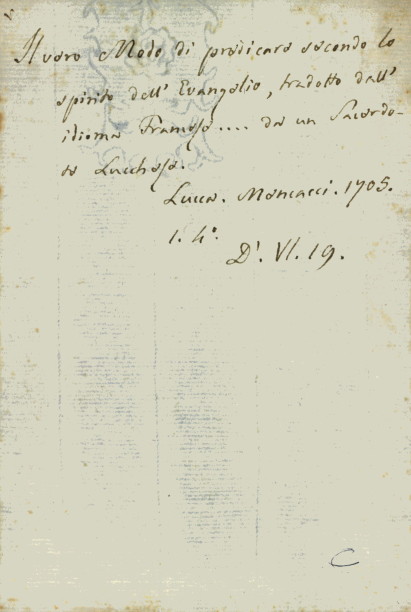 Il vero Modo di predicare secondo lo
spirito dell' Evangelio, tradotto dall'
idioma Franzese.... da un Sacerdo-
te Lucchese.
Lucca. Marescandoli. 1705.
1. 4°.
D'. VI. 19.
C